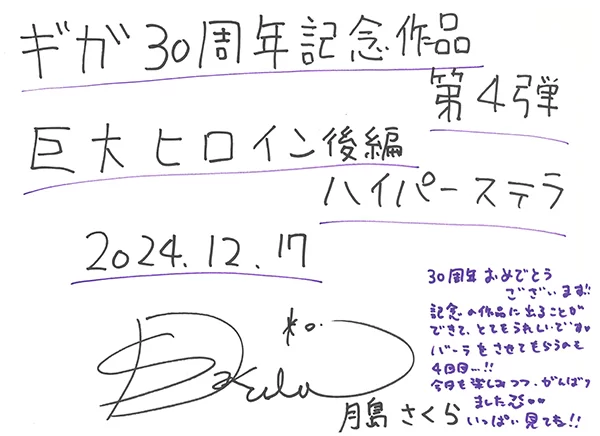 ギガ30周年記念作品
第4弾
巨大ヒロイン後編
ハイパーステラ
2024.12.17
Sakura
月島さくら
30周年おめでとう
ございます!!
記念の作品に出ることが
できて、とてもうれしいです。
バーラをさせてもらうのも
4回目…!!
今日も楽しみつつ、がんばり
ました
いっぱい見てね!!